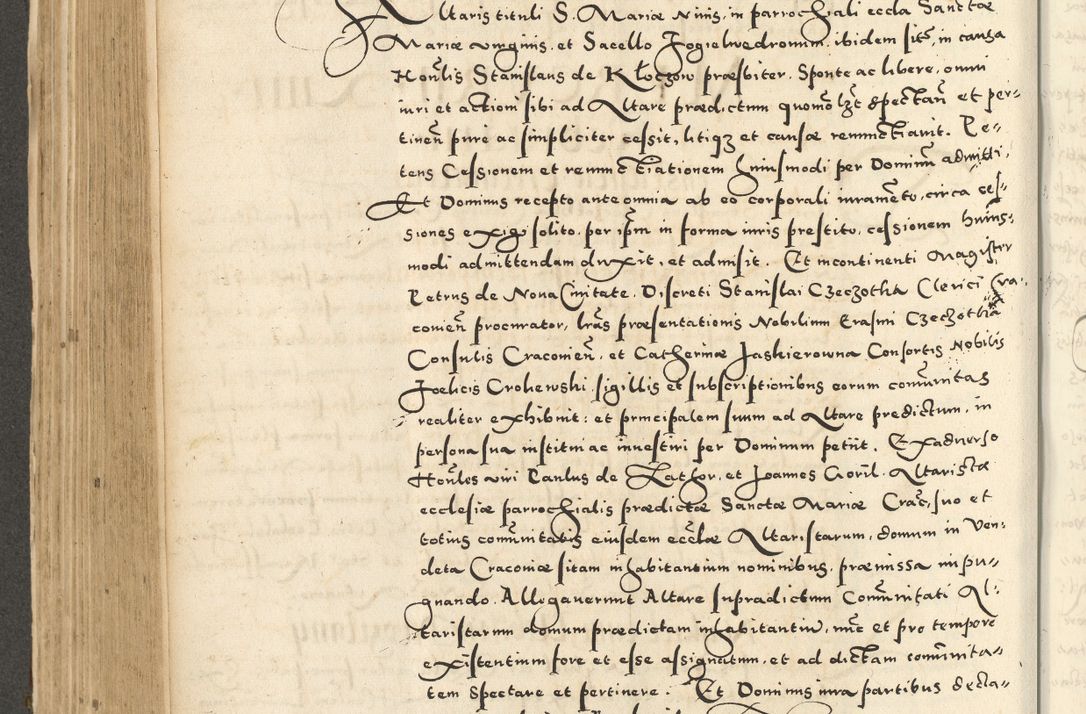 Altaris tituli S. Mariæ Nivis, in parrochiali eccla Sanctæ
Mariæ virginis, et Sacello Jogielwedronum, ibidem sitō, in causa
Honłis Stanislaus de Kłoczow præsbiter. Sponte ac libere, omni
iuri et actioni sibi ad Altare prædictum quomōłzt spectañ et per=
tineñ pure ac simpliciter cessit, litiqz et causæ renunctiavit. Pe=
tens Cessionem et renunctiationem huiusmodi per Dominū admitti.
Et Dominus recepto ante omnia ab eo corporali iuramēto, circa ces=
siones exigi solito, per ipm in forma iuris prestito, cessionem huius=
modi admittendam duxit, et admisit. Et incontinenti Magister
Petrus de Nova Civitate, Discreti Stanislai Czeczotka Clerici Cra=
covieñ procurator, lrās præsentationis Nobilium Erasmi Czeczotka
Consulis Cracovieñ, et Catherinæ Jaskierowna Consortis Nobilis
Foelicis Crokewski, sigillis et subscriptionibus eorum comūnitas
realiter exhibuit: et principalem suum ad Altare predictum, in
persona sua institui ac investiri per Dominum petiit. Exadverso
Honłes viri Paulus de Zathor, et Joannes Goril. Altaristæ
ecclesiæ parrochialis prædictæ Sanctæ Mariæ Crac, suo et
totius comūnitatis eiusdem ecclæ Altaristarum, domum in Ven=
deta Cracoviæ sitam inhabitantium nominibus, præmissa impu=
gnando. Allegaverunt Altare supradictum Comūnitati Al=
taristarum domum prædictam inhabitantiū, nūc et pro tempore
existentium fore et esse assignatum, et ad dictam comūnita=
tem spectare et pertinere: Et Dominus iura partibus decla=